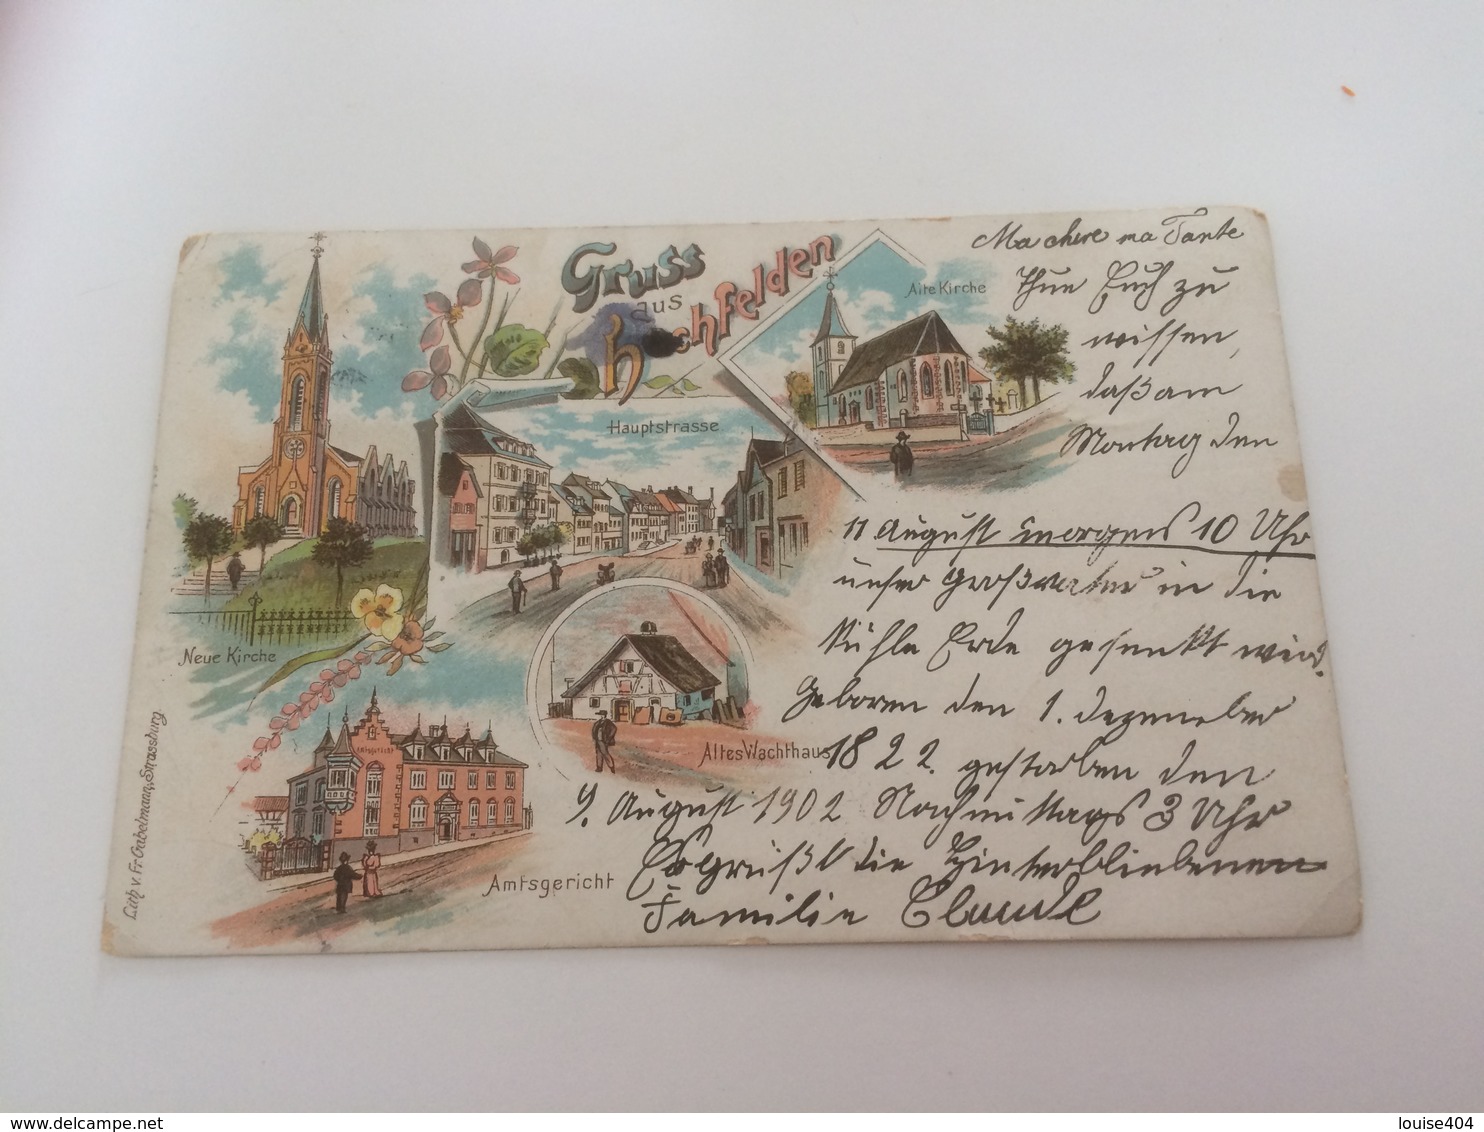 Gruss
aus
Hochfelden
Alte Kirche
Hauptstrasse
Neue Kirche
Altes Wachthaus
Amtsgericht
Amtsgericht
Lith. v. Fr. Gabelmann, Strassburg.
Ma chere ma Tante
Thue Euch zu
wissen,
daß am
Montag den
11 August morgens 10 Uhr
unser Großvater in die
Kühle Erde gesenkt wird.
Geboren den 1. Dezember
1822. gestorben den
9. August 1902 Nachmittags 3 Uhr
Es grüßt die Hinterbliebenen
Familie
delcampe.net
louise404